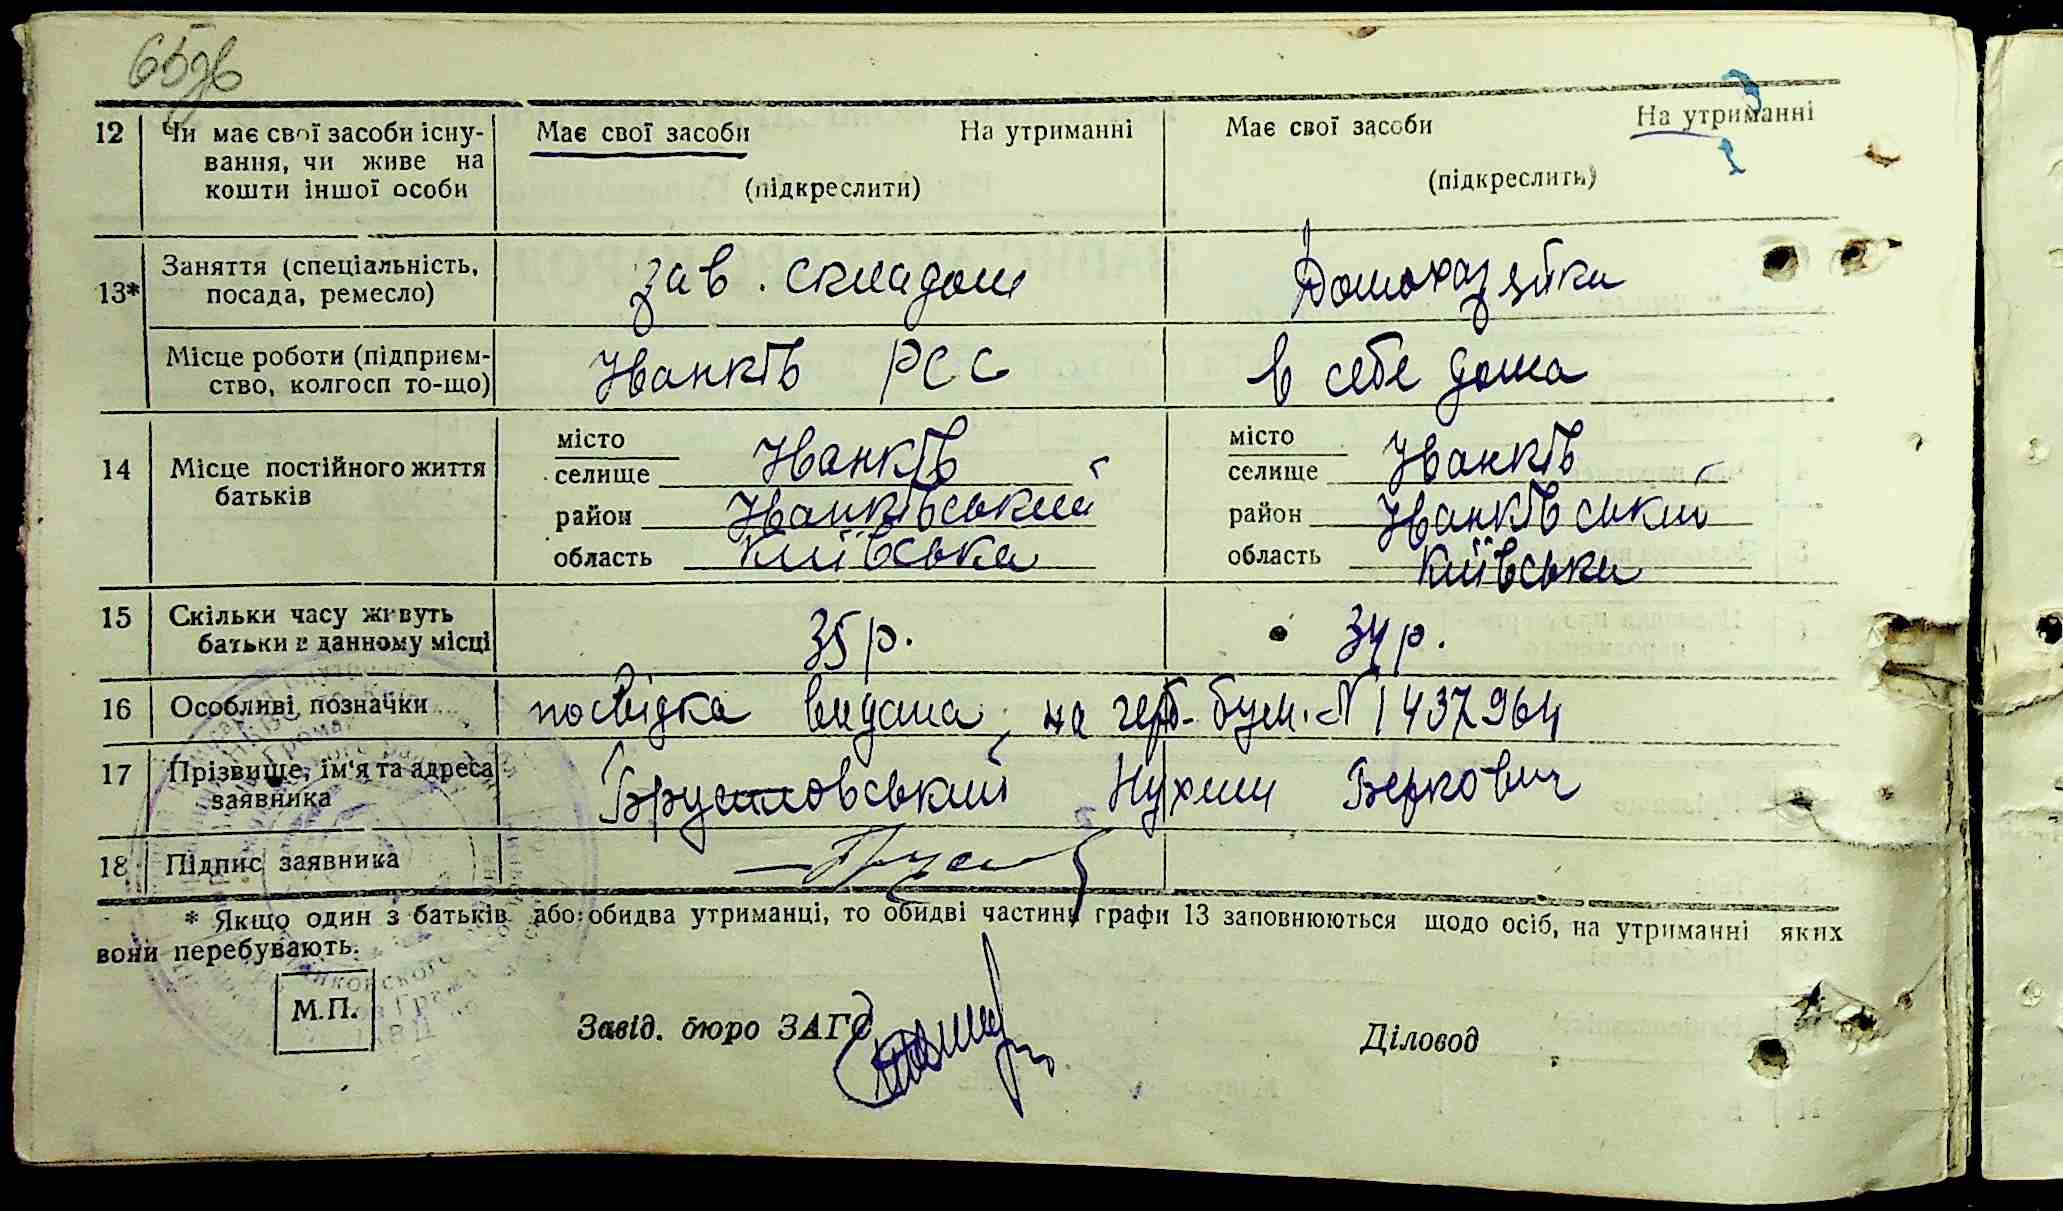 65зв
12 Чи має свої засоби існу- Має свої засоби На утриманні Має свої засоби На утриманні
вання, чи живе на
кошти іншої особи (підкреслити) (підкреслити)
13* Заняття (спеціальність, зав. складом Домохазяйка
посада, ремесло)
Місце роботи (підприєм- Іванків РСС в себе дома
ство, колгосп то-що)
14 Місце постійного життя місто місто
батьків селище Іванків селище Іванків
район Іванківський район Іванківський
область Київська область Київська
15 Скільки часу живуть 35 р. 34 р.
батьки в данному місці
16 Особливі позначки посвідка видана на герб. бум. № 1437964
17 Прізвище, ім'я та адреса Брусиловський Нухим Беркович
заявника
18 Підпис заявника
* Якщо один з батьків або обидва утриманці, то обидві частини графи 13 заповнюються щодо осіб, на утриманні яких
вони перебувають.
М.П. Завід. бюро ЗАГС Діловод